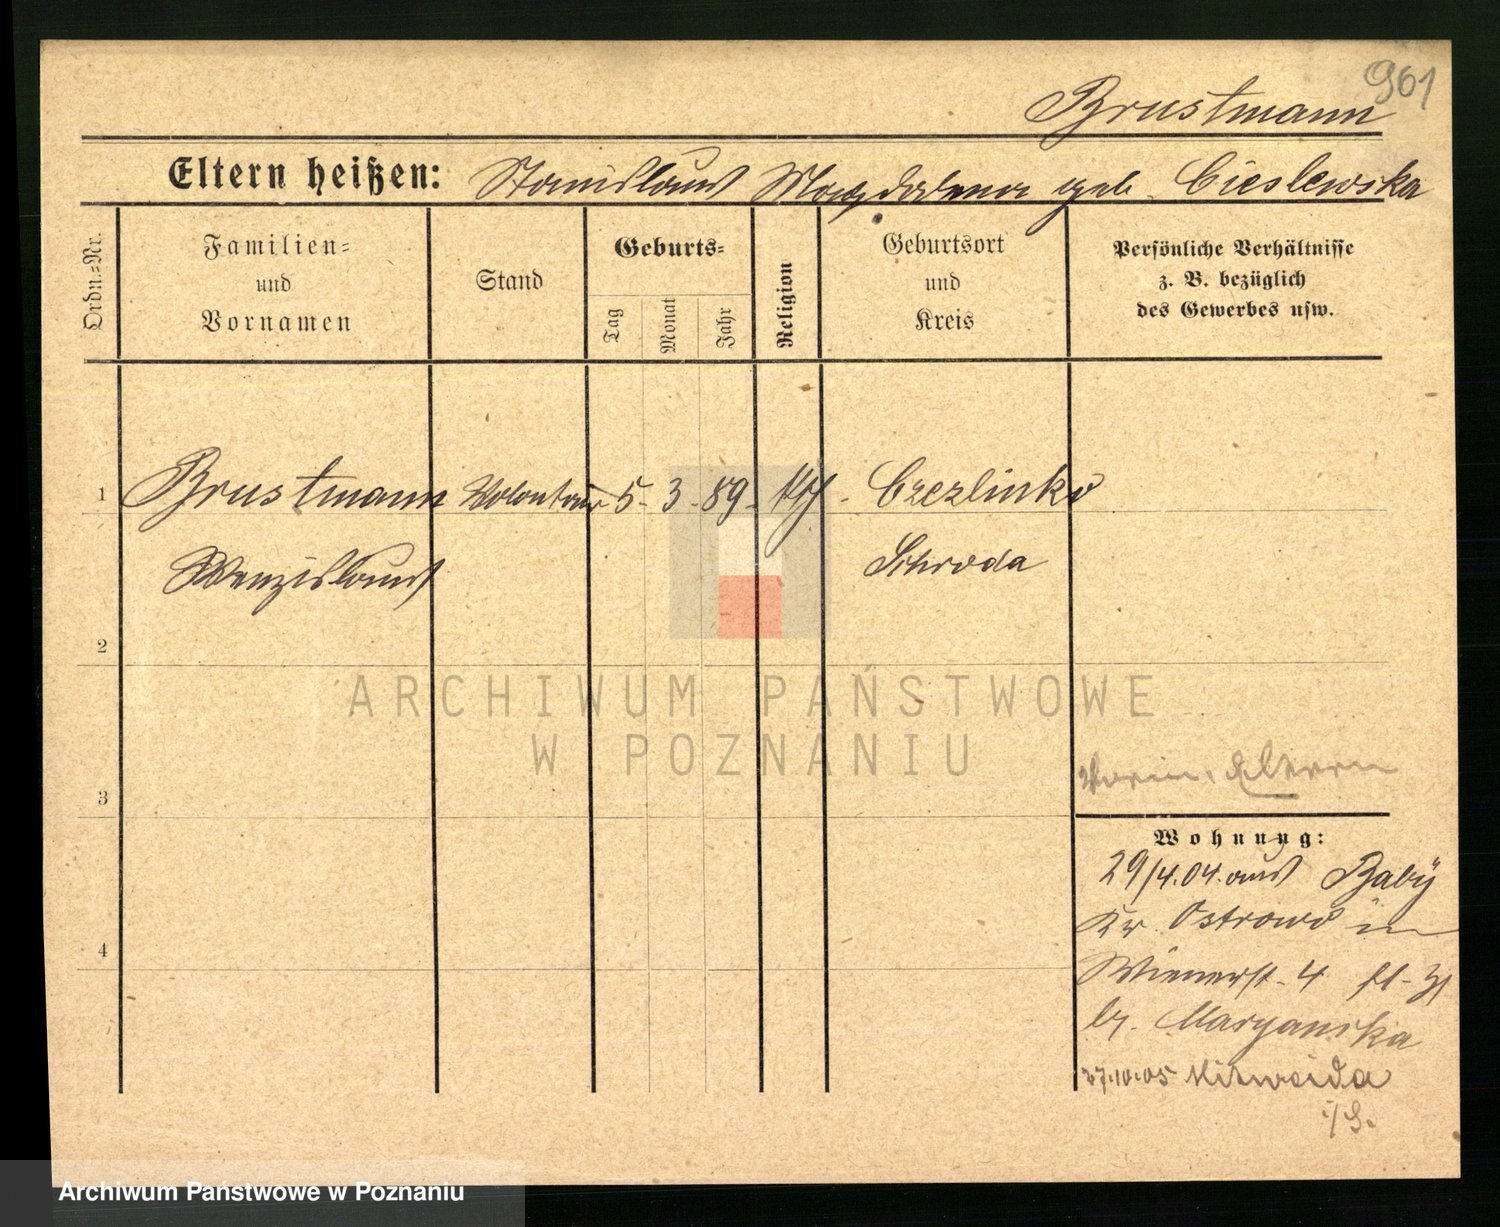 961
Brustmann
Eltern heißen: Stanislaus Magdalena geb. Cieslewska
Ordn.=Nr.
Familien=
und
Vornamen
Stand
Geburts=
Tag
Monat
Jahr
Religion
Geburtsort
und
Kreis
Persönliche Verhältnisse
z. B. bezüglich
des Gewerbes usw.
1 Brustmann Volontair 5. 3. 89. kth. Czezlinko
Wenzislaus Schroda
2
3
Eltern
Wohnung:
29/4.04. aus Baby
Kr. Ostrowo in
Wienerst. 4
b. Maryanska
4
27.10.05 Mitweida
i/S.
ARCHIWUM PAŃSTWOWE
W POZNANIU
Archiwum Państwowe w Poznaniu